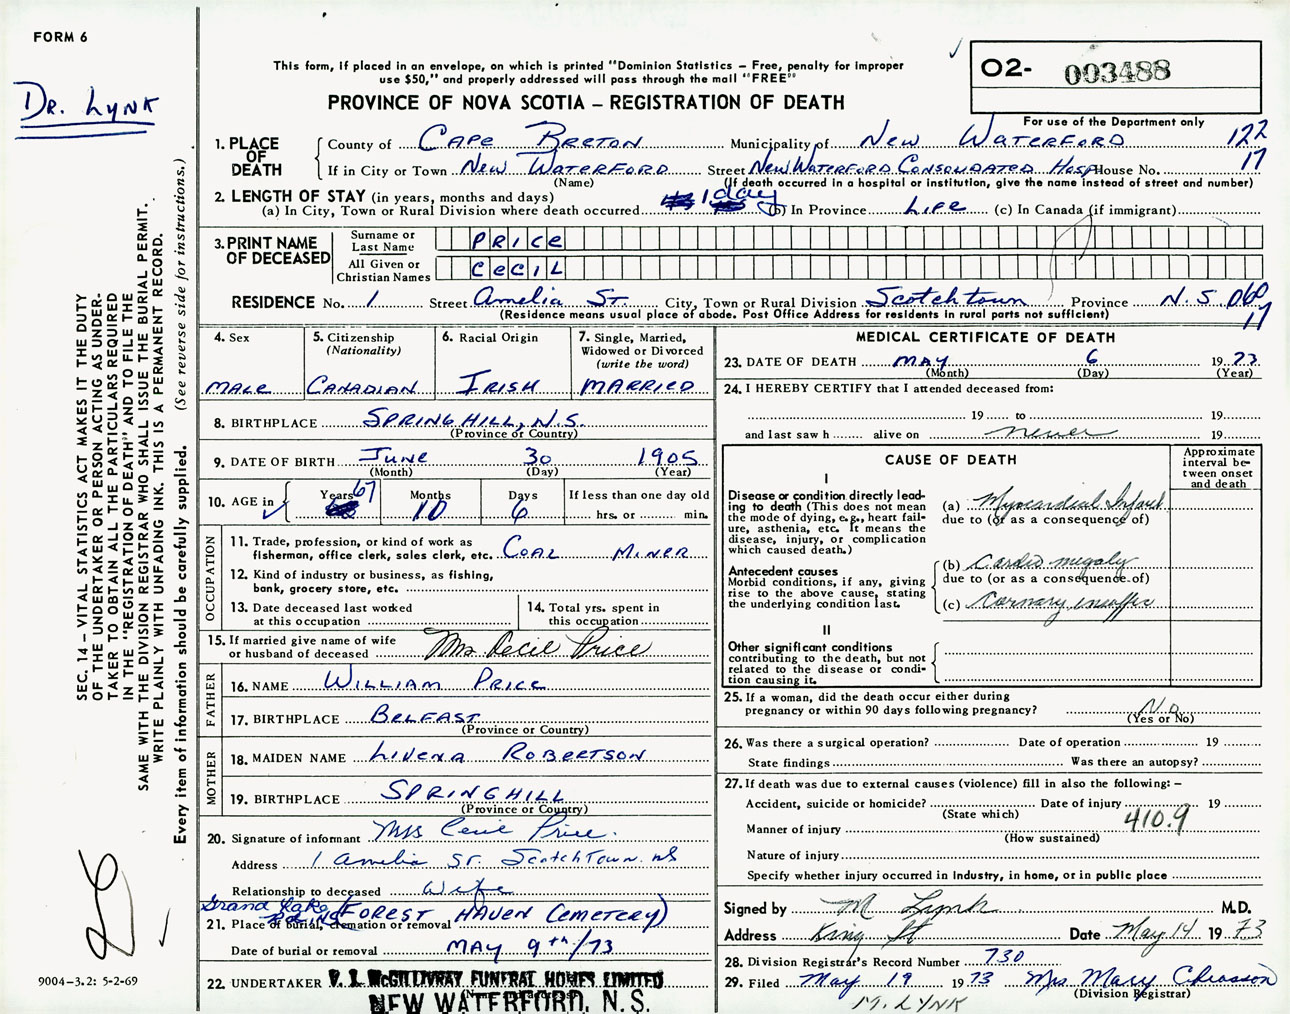 FORM 6
DR. LYNK
This form, if placed in an envelope, on which is printed "Dominion Statistics – Free, penalty for improper
use $50," and properly addressed will pass through the mail "FREE"
PROVINCE OF NOVA SCOTIA – REGISTRATION OF DEATH
O2- 003488
For use of the Department only
1. PLACE OF DEATH
County of CAPE BRETON Municipality of NEW WATERFORD 122
If in City or Town NEW WATERFORD Street NEW WATERFORD CONSOLIDATED HOSP House No. 17
(Name) (If death occurred in a hospital or institution, give the name instead of street and number)
2. LENGTH OF STAY (in years, months and days)
(a) In City, Town or Rural Division where death occurred 1 day (b) In Province LIFE (c) In Canada (if immigrant)
3. PRINT NAME OF DECEASED
Surname or Last Name PRICE
All Given or Christian Names CECIL
RESIDENCE No. 1 Street Amelia ST. City, Town or Rural Division Scotchtown Province N.S. 060
(Residence means usual place of abode. Post Office Address for residents in rural parts not sufficient) 17
4. Sex MALE
5. Citizenship (Nationality) CANADIAN
6. Racial Origin IRISH
7. Single, Married, Widowed or Divorced (write the word) MARRIED
8. BIRTHPLACE SPRINGHILL, N.S.
(Province or Country)
9. DATE OF BIRTH June 30 1905
(Month) (Day) (Year)
10. AGE in Years 67 Months 10 Days 6 If less than one day old
hrs. or min.
OCCUPATION
11. Trade, profession, or kind of work as
fisherman, office clerk, sales clerk, etc. COAL MINER
12. Kind of industry or business, as fishing,
bank, grocery store, etc.
13. Date deceased last worked
at this occupation
14. Total yrs. spent in
this occupation
15. If married give name of wife
or husband of deceased Mrs Cecil Price
FATHER
16. NAME WILLIAM PRICE
17. BIRTHPLACE BELFAST
(Province or Country)
MOTHER
18. MAIDEN NAME LIVENA ROBERTSON
19. BIRTHPLACE SPRINGHILL
(Province or Country)
20. Signature of informant Mrs Cecil Price.
Address 1 Amelia St. ScotchTown. NS
Relationship to deceased Wife
Grand Lake (FOREST HAVEN CEMETERY)
21. Place of burial, cremation or removal
Date of burial or removal MAY 9th/73
22. UNDERTAKER V. J. McGILLIVRAY FUNERAL HOMES LIMITED
NEW WATERFORD, N.S.
MEDICAL CERTIFICATE OF DEATH
23. DATE OF DEATH MAY 6 1973
(Month) (Day) (Year)
24. I HEREBY CERTIFY that I attended deceased from:
19 to 19
and last saw h alive on never 19
CAUSE OF DEATH
Approximate interval between onset and death
I
Disease or condition directly lead-
ing to death (This does not mean
the mode of dying, e.g., heart fail-
ure, asthenia, etc. It means the
disease, injury, or complication
which caused death.)
(a) Myocardial Infarct
due to (or as a consequence of)
Antecedent causes
Morbid conditions, if any, giving
rise to the above cause, stating
the underlying condition last.
(b) Cardio megaly
due to (or as a consequence of)
(c) Cornary insuffic
II
Other significant conditions
contributing to the death, but not
related to the disease or condi-
tion causing it.
25. If a woman, did the death occur either during
pregnancy or within 90 days following pregnancy? No
(Yes or No)
26. Was there a surgical operation? Date of operation 19
State findings Was there an autopsy?
27. If death was due to external causes (violence) fill in also the following: –
Accident, suicide or homicide? Date of injury 19
(State which)
410.9
Manner of injury
(How sustained)
Nature of injury
Specify whether injury occurred in Industry, in home, or in public place
Signed by M Lynk M.D.
Address King St Date May 14 1973
28. Division Registrar's Record Number 730
29. Filed May 19 1973 Mrs Mary Chiasson
(Division Registrar)
M. LYNK
SEC. 14 – VITAL STATISTICS ACT MAKES IT THE DUTY
OF THE UNDERTAKER OR PERSON ACTING AS UNDER-
TAKER TO OBTAIN ALL THE PARTICULARS REQUIRED
IN THE "REGISTRATION OF DEATH" AND TO FILE THE
SAME WITH THE DIVISION REGISTRAR WHO SHALL ISSUE THE BURIAL PERMIT.
WRITE PLAINLY WITH UNFADING INK. THIS IS A PERMANENT RECORD.
Every item of information should be carefully supplied. (See reverse side for instructions.)
9004-3.2: 5-2-69